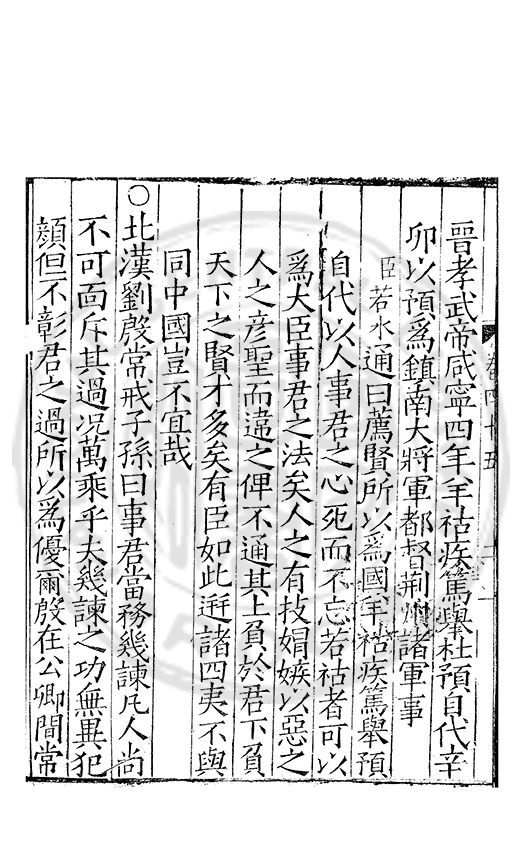 晉孝武帝咸寧四年羊祜疾篤舉杜預自代辛
卯以預爲鎮南大將軍都督荆州諸軍事
臣若水通曰薦賢所以爲國羊祜疾篤舉預
自代以人事君之心死而不忘若祜者可以
爲大臣事君之法矣人之有技娟嫉以惡之
人之彦聖而違之俾不通其上負於君下負
天下之賢才多矣有臣如此迸諸四夷不與
同中國豈不宜哉
○北漢劉殷常戒子孫曰事君當務幾諫凡人尚
不可面斥其過况萬乘乎夫幾諫之功無異犯
顔但不彰君之過所以爲優爾殷在公卿間常
卷四十五